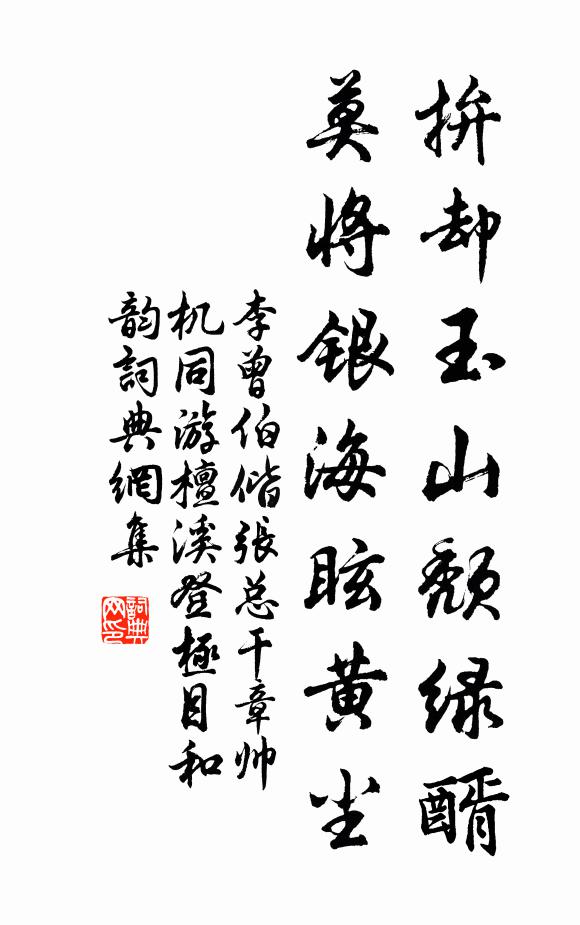 拚却玉山颓绿醑
莫将银海眩黄尘
李曾伯偕张总干章帅
机同游檀溪登极目和
韵词典网集
词典网印